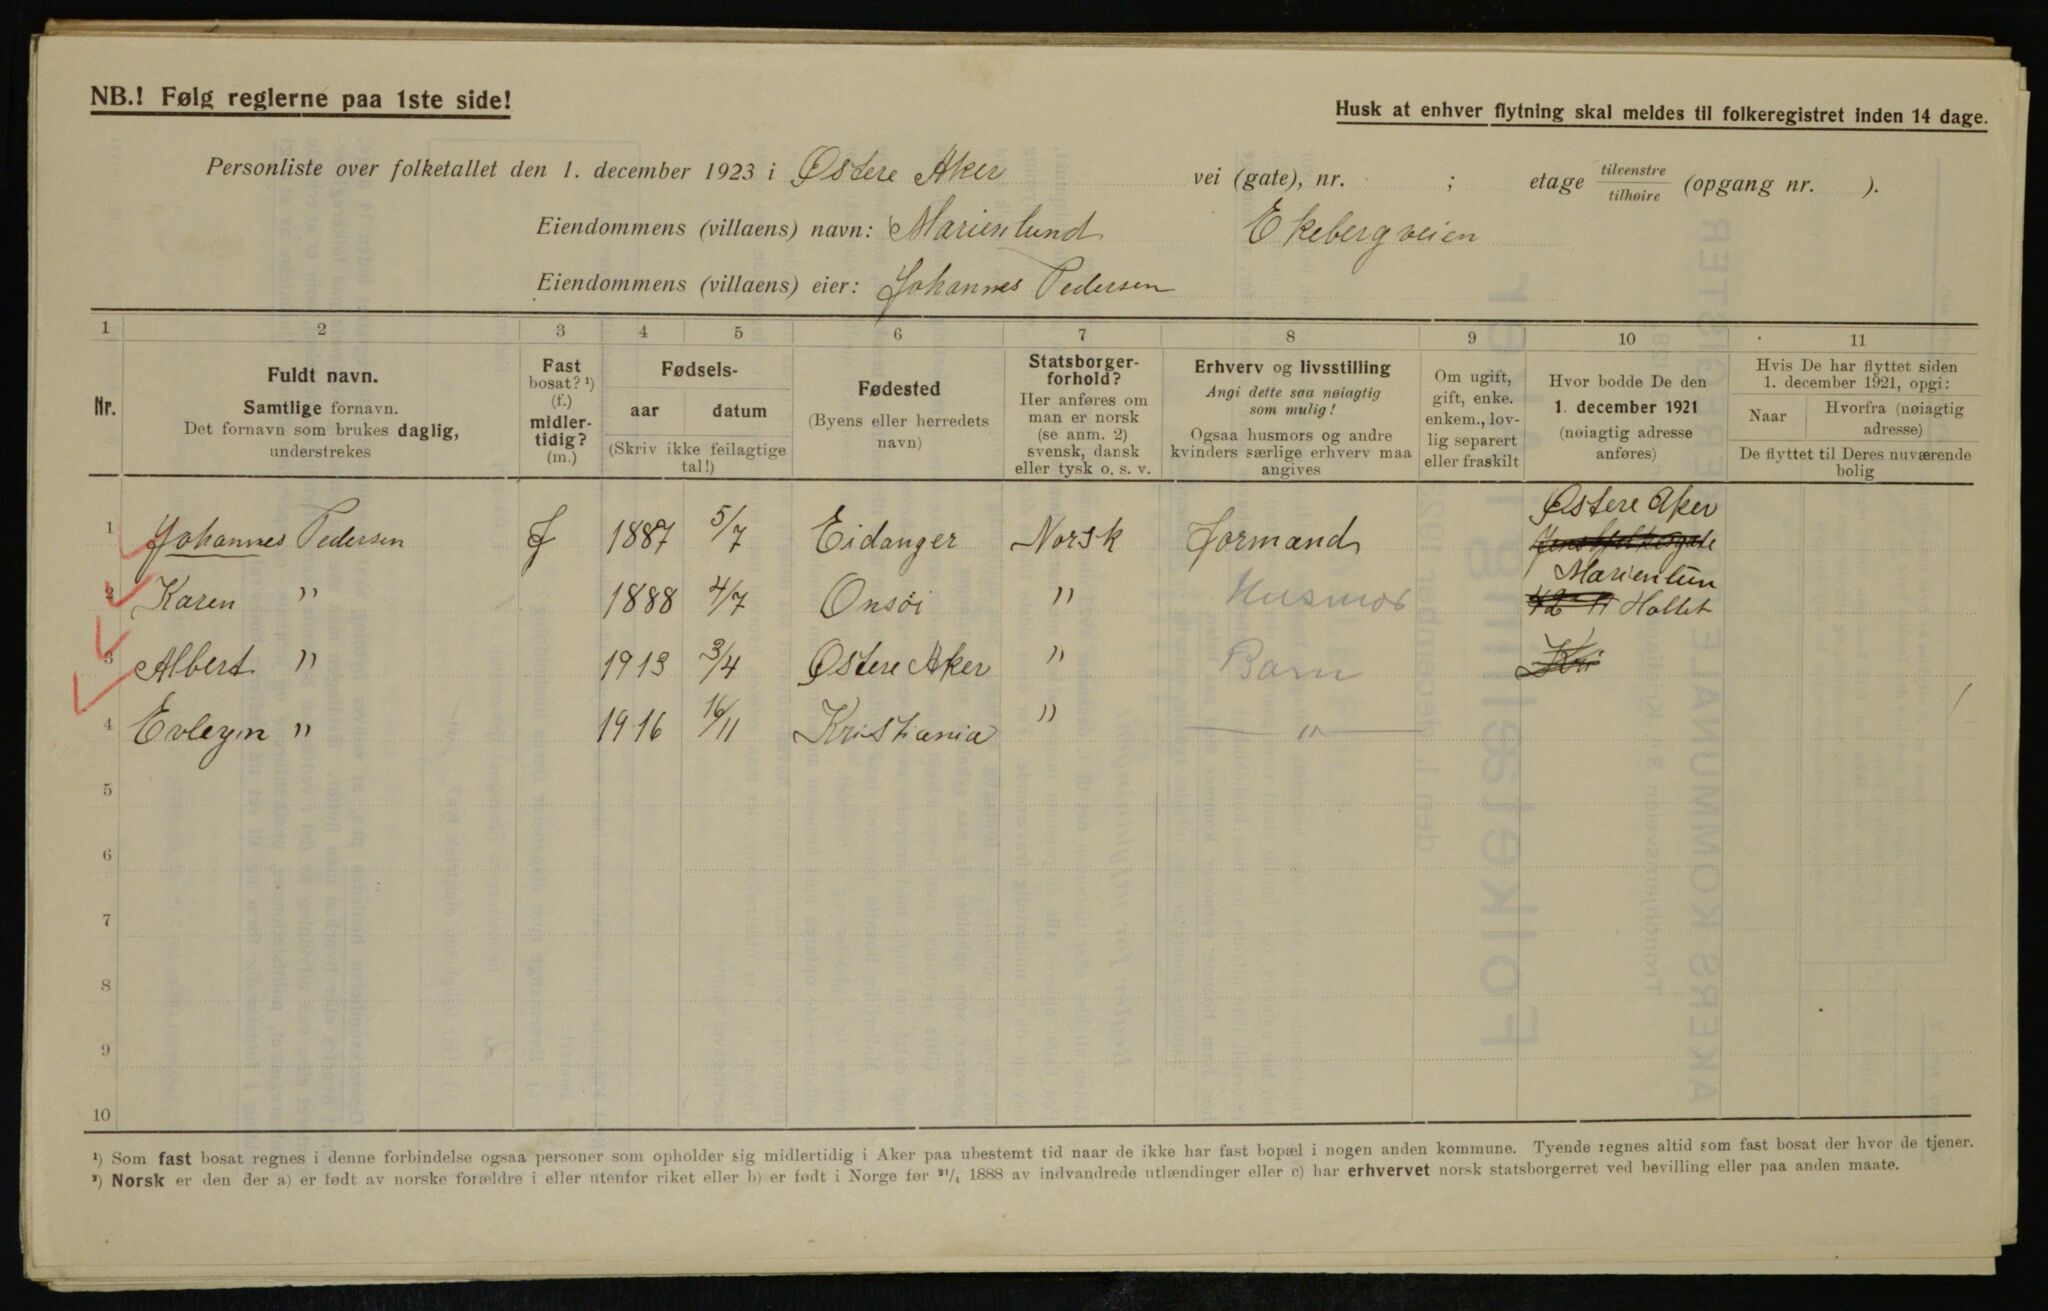 NB.! Følg reglerne paa 1ste side!
Husk at enhver flytning skal meldes til folkeregistret inden 14 dage.
Personliste over folketallet den 1. december 1923 i Østere Aker vei (gate), nr. ; etage tilvenstre tilhøire (opgang nr. ).
Eiendommens (villaens) navn: Marienlund Ekebergveien
Eiendommens (villaens) eier: Johannes Pedersen
1 2 3 4 5 6 7 8 9 10 11
Nr.
Fuldt navn.
Samtlige fornavn.
Det fornavn som brukes daglig,
understrekes
Fast
bosat? ¹)
(f.)
midler-
tidig?
(m.)
Fødsels-
aar datum
(Skriv ikke feilagtige
tal!)
Fødested
(Byens eller herredets
navn)
Statsborger-
forhold?
Her anføres om
man er norsk
(se anm. 2)
svensk, dansk
eller tysk o. s. v.
Erhverv og livsstilling
Angi dette saa nøiagtig
som mulig!
Ogsaa husmors og andre
kvinders særlige erhverv maa
angives
Om ugift,
gift, enke.
enkem., lov-
lig separert
eller fraskilt
Hvor bodde De den
1. december 1921
(nøiagtig adresse
anføres)
Hvis De har flyttet siden
1. december 1921, opgi:
Naar
Hvorfra (nøiagtig
adresse)
De flyttet til Deres nuværende
bolig
Østere Aker
1 Johannes Pedersen f 1887 5/7 Eidanger Norsk Formand
Marienlun
2 Karen " 1888 4/7 Onsøi " Husmor 42 " Holtet
3 Albert " 1913 3/4 Østere Aker " Barn Kri
4 Evleyn " 1916 16/11 Kristiania " "
5
6
7
8
9
10
¹) Som fast bosat regnes i denne forbindelse ogsaa personer som opholder sig midlertidig i Aker paa ubestemt tid naar de ikke har fast bopæl i nogen anden kommune. Tyende regnes altid som fast bosat der hvor de tjener.
²) Norsk er den der a) er født av norske forældre i eller utenfor riket eller b) er født i Norge før ²¹/₄ 1888 av indvandrede utlændinger eller c) har erhvervet norsk statsborgerret ved bevilling eller paa anden maate.